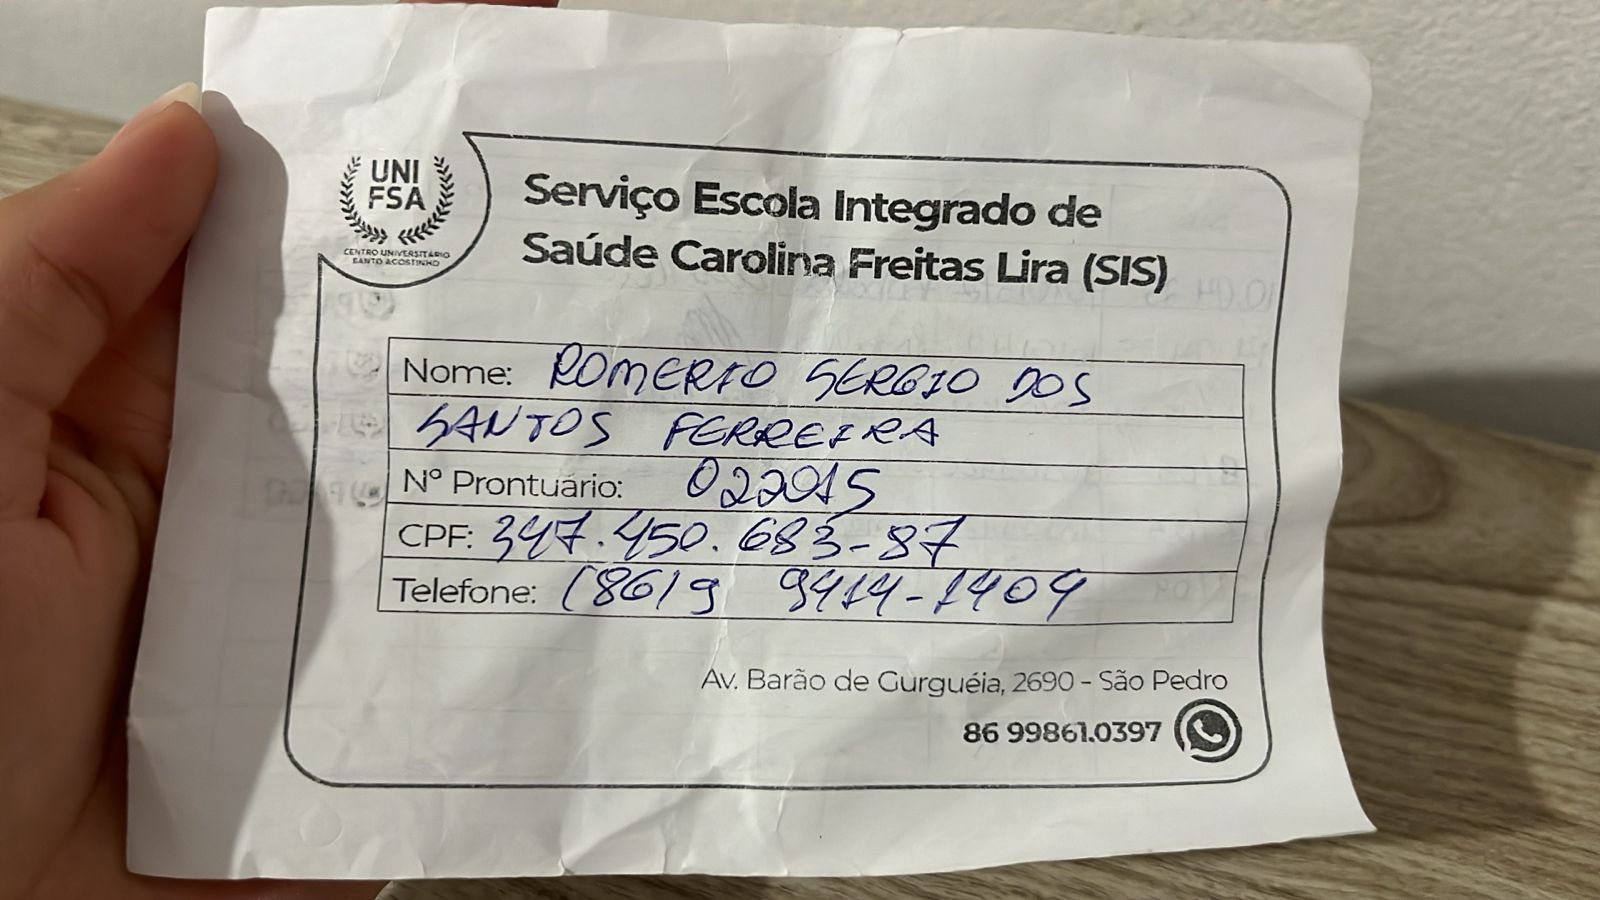 UNI
FSA
CENTRO UNIVERSITÁRIO
SANTO AGOSTINHO
Serviço Escola Integrado de
Saúde Carolina Freitas Lira (SIS)
Nome: ROMERIO SERGIO DOS
SANTOS FERREIRA
Nº Prontuário: 022015
CPF: 347.450.683-87
Telefone: (86) 9 9414-1404
Av. Barão de Gurguéia, 2690 - São Pedro
86 99861.0397